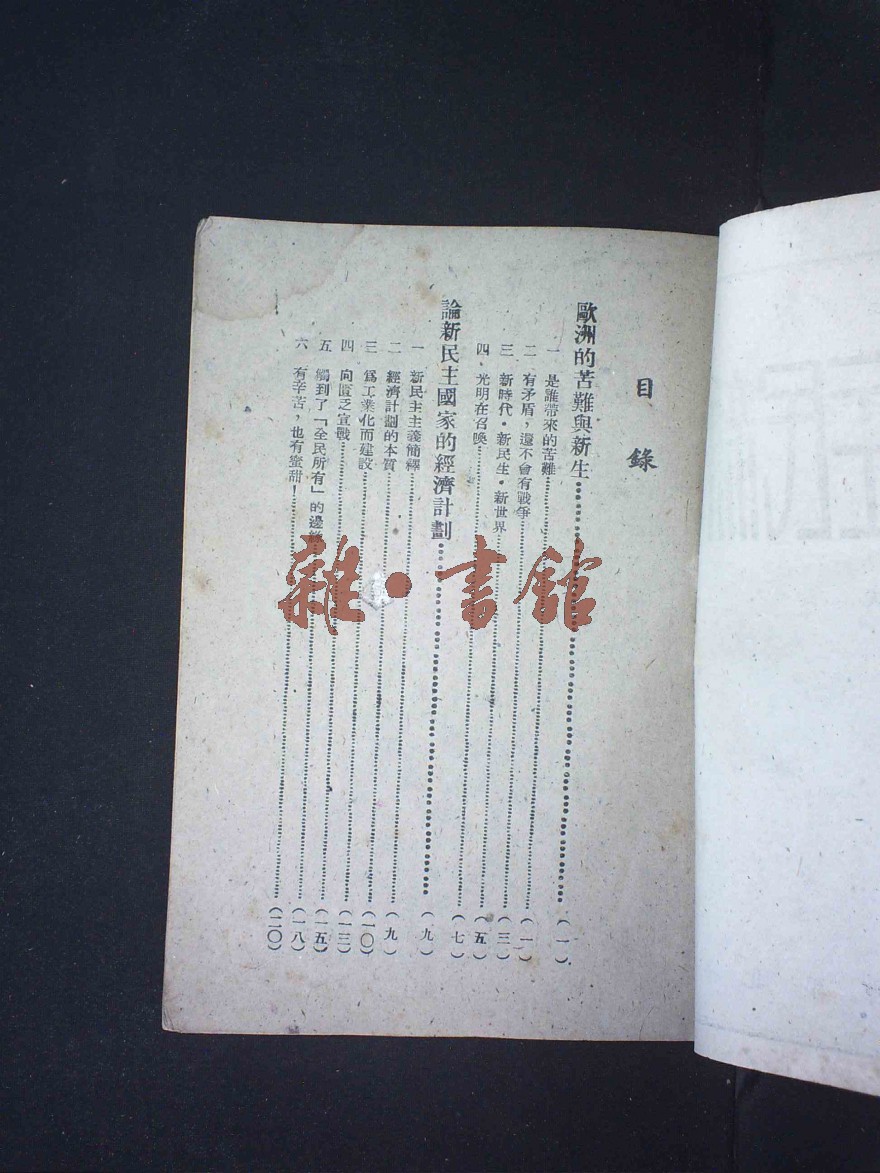 目錄
歐洲的苦難與新生………(一)
一 是誰帶來的苦難………(一)
二 有矛盾，還不會有戰爭………(三)
三 新時代・新民生・新世界………(五)
四 光明在召喚………(七)
論新民主國家的經濟計劃………(九)
一 新民主主義簡釋………(九)
二 經濟計劃的本質………(一〇)
三 爲工業化而建設………(一三)
四 向匱乏宣戰………(一五)
五 觸到了「全民所有」的邊緣………(一八)
六 有辛苦，也有蜜甜！………(二〇)
雜・書館